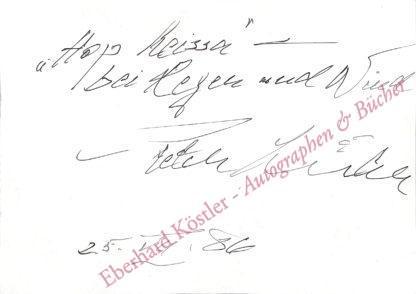 „Hop Heissa" —
bei Regen und Wind
— Peter
25. . 86
Eberhard Köstler - Autographen & Bücher